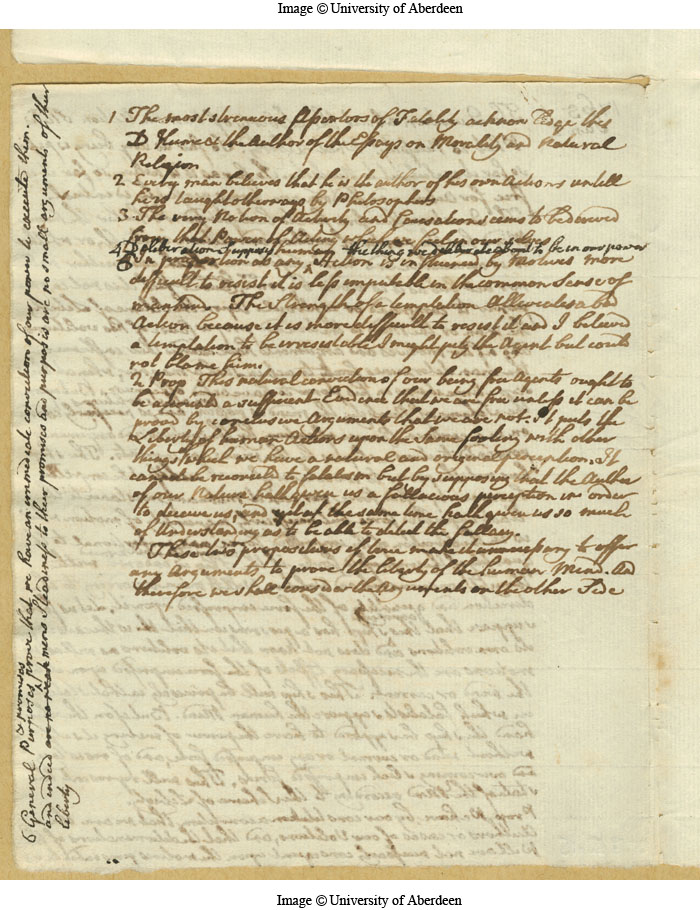 Image © University of Aberdeen
1 The most strenuous Assertors of Fatality acknowledge this
D Hume & the Author of the Essays on Morality and Natural
Religion
2 Every man believes that he is the author of his own Actions untill
he is taught otherways by Philosophers
3 The very Notion of Activity and
from that Power of Acting
4 Deliberation supposes the thing we deliberate about to be in our power
5 In proportion as any human Action is influenced by Motives more
difficult to resist it is less imputable in the common Sense of
mankind. The Strength of a temptation Alleviates a bad
Action because it is more difficult to resist it and I believed
a temptation to be irresistable I might pity the Agent but could
not blame him.
2 Prop This natural conviction of our being free Agents ought to
be admitted a sufficient Evidence that we are free unless it can be
proved by conclusive Arguments that we are not. It puts the
Liberty of human Actions upon the same footing with other
things which we have a natural and original perception. It
cannot be reconciled to fatalism but by supposing that the Author
of our Nature hath given us a fallacious perception in order
to deceive us, and yet at the same time hath given us so much
of Understanding as to be able to detect the fallacy.
These two propositions if true make it unnecessary to offer
any Arguments to prove the liberty of the human Mind. And
therefore we shall consider the Arguments on the other Side
6 General Purposes & promises prove that we have an immediate conviction of our power to execute them.
and indeed mens Steadiness to their promises and purposes are no small arguments of their
liberty
Image © University of Aberdeen